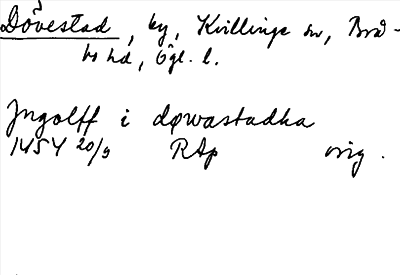 Dövestad, by, Kvillinge sn, Brå-
bo hd, Ögl. l.
Jngolff i døwastadha
1454 20/9 RAp orig.